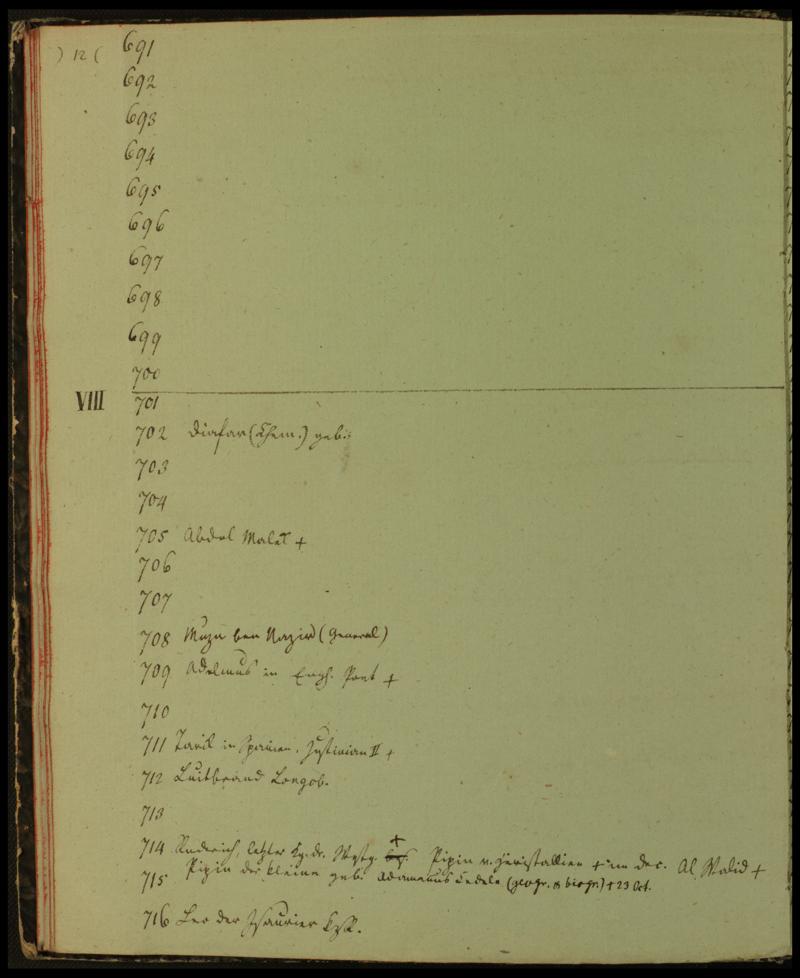 ) 12 (
691
692
693
694
695
696
697
698
699
700
VIII 701
702 Diafar (Chem.) geb.
703
704
705 Abdel Malek +
706
707
708 Muza ben Nazir (General)
709 Adelmus in Engl. Poet +
710
711 Tarik in Spanien. Justinian II +
712 Luitbrand Longob.
713
714 Ruderich, letzter Kg. dr. Wstg. + Pipin v. Heristallien + im Dec. Al Walid +
715 Pipin der kleine geb. Adamanus (geogr. & biogr.) + 23 Oct.
716 Leo der Isaurier